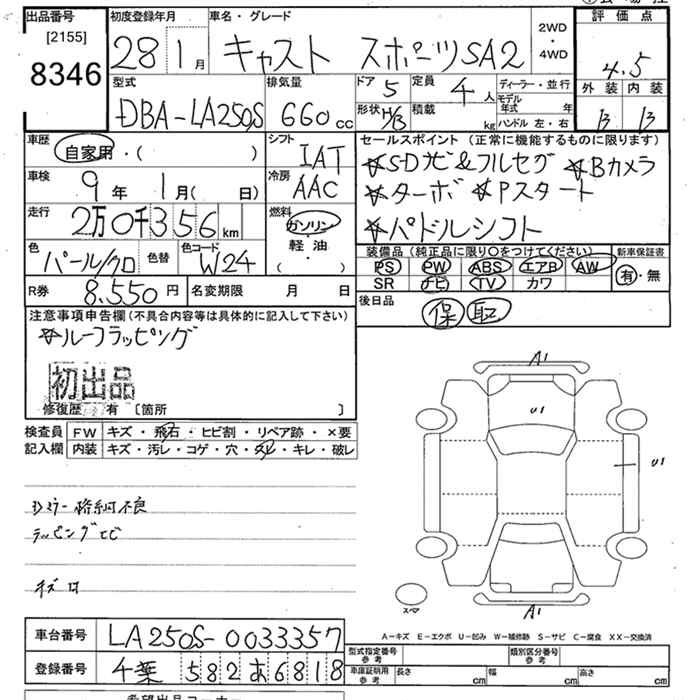 出品番号
[2155]
8346
初度登録年月
28 1月
車名・グレード
キャスト スポーツSA2
2WD
・
4WD
評価点
4.5
外装 内装
B B
型式
DBA-LA250S
排気量
660cc
ドア 5
定員 4人
形状 H/B
積載 kg
ディーラー・並行
モデル年式 年
ハンドル 左・右
車歴
自家用・( )
シフト
IAT
車検
9年 1月( 日)
冷房
AAC
走行
2万0千356km
燃料
ガソリン
軽油
( )
色
パール/クロ
色替
色コード
W24
R券 8.550円
名変期限 月 日
セールスポイント (正常に機能するものに限ります)
☆SDナビ&フルセグ ☆Bカメラ
☆ターボ ☆Pスタート
☆パドルシフト
装備品(純正品に限り○をつけてください)
PS PW ABS エアB AW
SR ナビ TV カワ
新車保証書
有・無
後日品
保 取
注意事項申告欄(不具合内容等は具体的に記入して下さい)
☆ルーフラッピング
初出品
修復歴 有 [箇所 ]
検査員記入欄
FW キズ・飛石・ヒビ割・リペア跡・×要
内装 キズ・汚レ・コゲ・穴・スレ・キレ・破レ
Dミラー格納不良
ラッピングヒビ
キズ ロ
A1
U1
U1
A1
スペア
A-キズ E-エクボ U-凹み W-補修跡 S-サビ C-腐食 XX-交換済
車台番号 LA250S-0033357
登録番号 千葉 582 あ6818
型式指定番号 参考
類別区分番号 参考
車庫証明用 参考 長さ cm 幅 cm 高さ cm